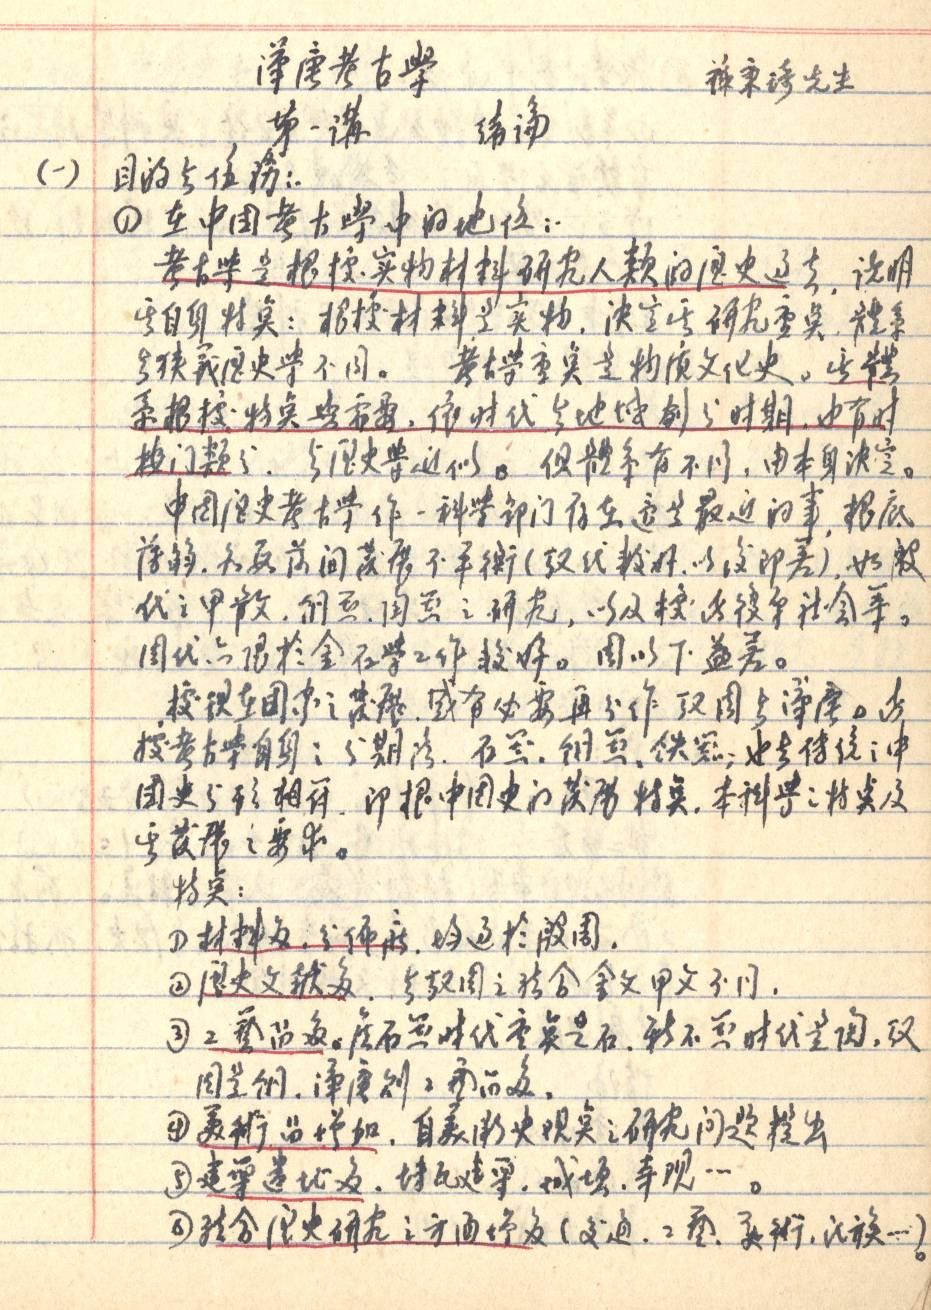 漢唐考古學
蘇秉琦先生
第一講 緒論
(一) 目的与任務：
① 在中国考古學中的地位：
考古學是根據实物材料研究人類的歷史过去，說明
其自身特點：根據材料是实物，决定其研究重點，體系
与狹義歷史學不同。 考古學重點是物质文化史。其體
系根據特點与需要，依时代与地域劃分时期，也有时
按门類分，与歷史學近似。但體系有不同，由本身决定。
中国歷史考古學作一科學部门存在还是最近的事，根底
薄弱，各段落间發展不平衡(殷代較好，以後即差)，如殷
代之甲骨文，銅器，陶器之研究，以及據此復原社会等。
周代亦限於金石學工作較好。周以下益差。
按現在国家之發展，或有必要再分作殷周与漢唐。此
按考古學自身之分期法，石器，銅器，鉄器；也与传統之中
国史分形相符，即根中国史的發展特點，本科學之特點及
其發展之要求。
特點：
①材料多，分佈廣，均过於殷周，
②歷史文献多，与殷周之結合金文甲文不同，
③工藝品多。舊石器时代重點是石，新石器时代是陶，殷
周是銅，漢唐則工藝品多。
④美術品增加，自美術史觀點之研究问题提出
⑤建築遺址多，塼瓦建築，城墙，寺观…。
⑥結合歷史研究之方面增多(交通，工藝，美術，民族…)。